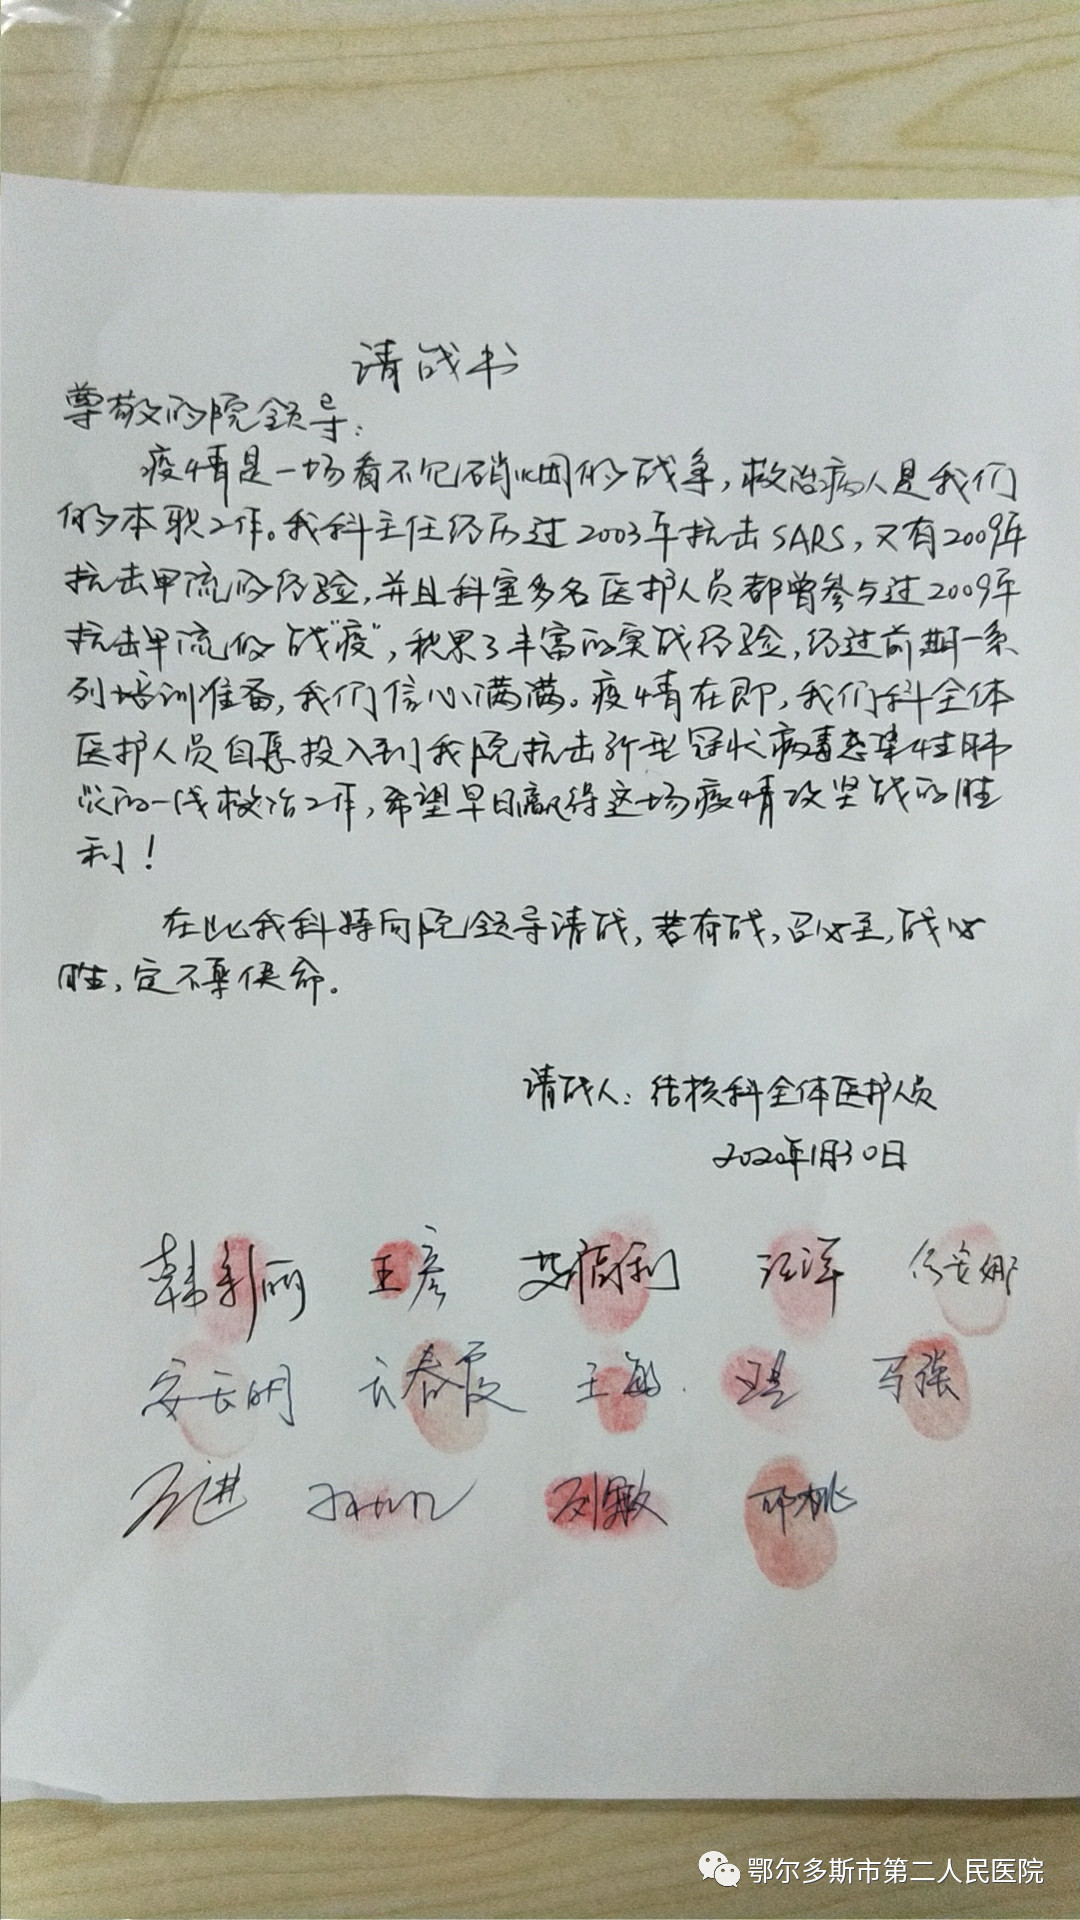 请战书
尊敬的院领导：
疫情是一场看不见硝烟的战争，救治病人是我们
的本职工作。我科主任经历过2003年抗击SARS，又有2009年
抗击甲流的经验，并且科室多名医护人员都曾参与过2009年
抗击甲流的战“疫”，积累了丰富的实战经验，经过前期一系
列培训准备，我们信心满满。疫情在即，我们科全体
医护人员自愿投入到我院抗击新型冠状病毒感染性肺
炎的一线救治工作，希望早日赢得这场疫情攻坚战的胜
利！
在此我科特向院领导请战，若有战，召必至，战必
胜，定不辱使命。
请战人：结核科全体医护人员
2020年1月30日
韩利丽 王彦 汪洋
王敏 马强
刘敏 邱桃
鄂尔多斯市第二人民医院